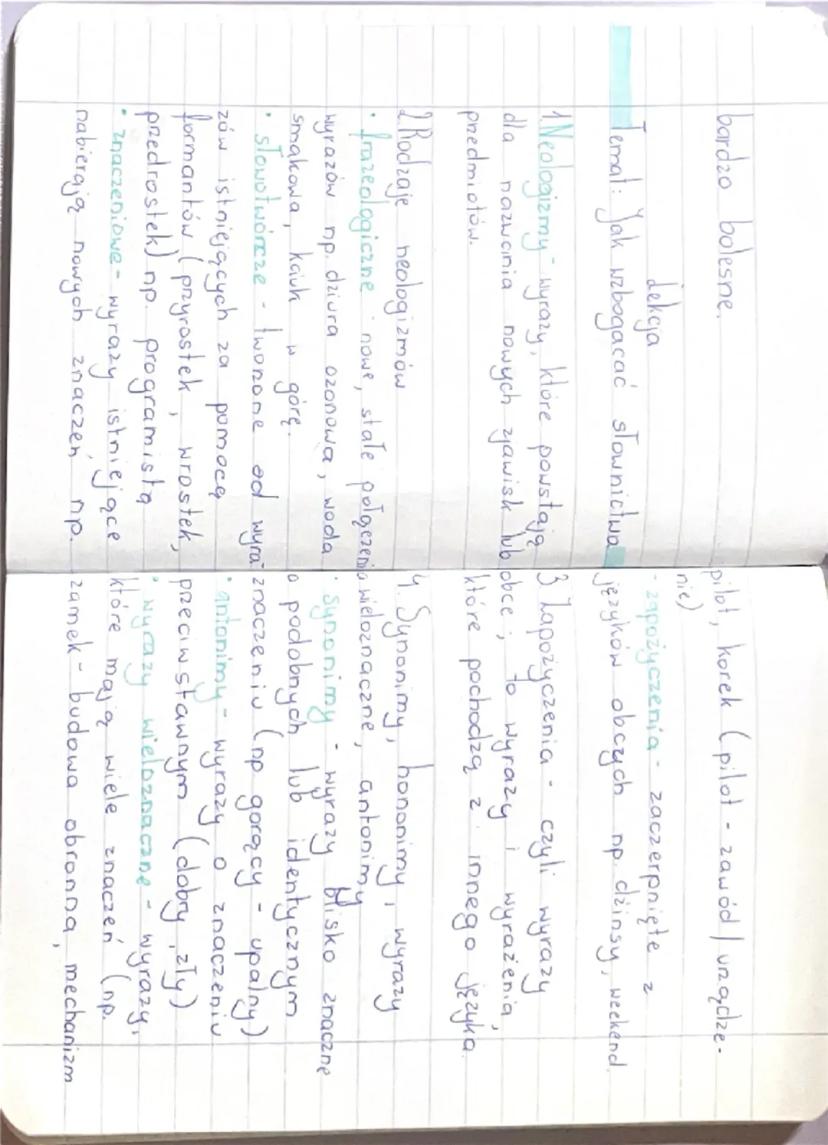 bardzo bolesne.
Lekcja
Temat: Jak wzbogacać słownictwo
1. Neologizmy - wyrazy, które powstają
dla nazwania nowych zjawisk lub
przedmiotów.
2. Rodzaje neologizmów
• frazeologiczne - nowe, stałe połączenia
wyrazów np. dziura ozonowa, woda
smakowa, kciuk w górę.
• słowotwórcze - tworzone od wyra-
zów istniejących za pomocą
formantów (przyrostek, wrostek,
przedrostek) np. programista
• znaczeniowe - wyrazy istniejące
nabierają nowych znaczeń np.
pilot, korek (pilot - zawód / urządze-
nie)
- zapożyczenia - zaczerpnięte z
języków obcych np. dżinsy, weekend.
3. Zapożyczenia - czyli wyrazy
obce; to wyrazy i wyrażenia,
które pochodzą z innego języka.
4. Synonimy, hononimy, wyrazy
wieloznaczne, antonimy
• synonimy - wyrazy blisko znaczne
o podobnych lub identycznym
znaczeniu (np gorący - upalny)
• antonimy - wyrazy o znaczeniu
przeciwstawnym (dobry, zły)
• wyrazy wieloznaczne - wyrazy,
które mają wiele znaczeń (np.
zamek - budowa obronna, mechanizm